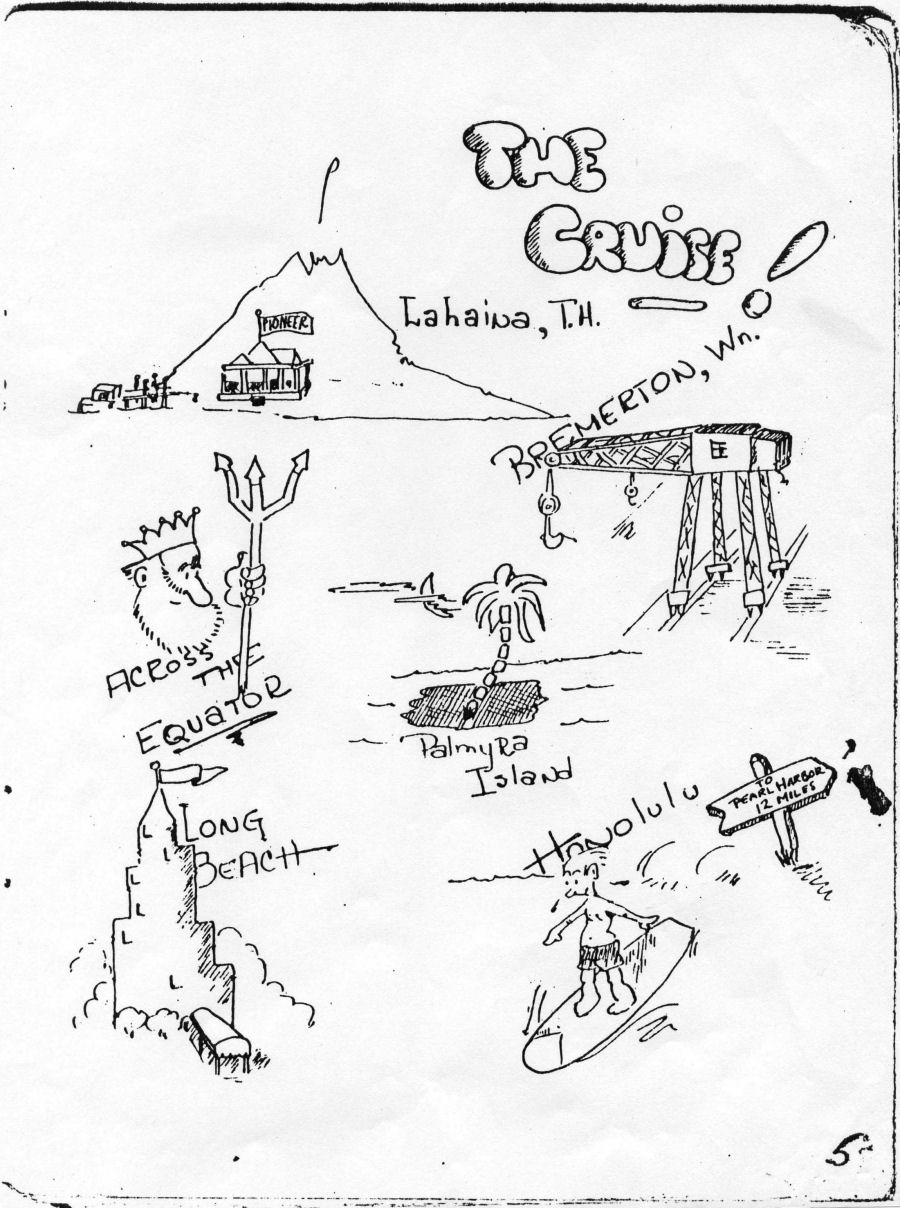 THE
CRUISE — !
Lahaina, T.H.
PIONEER
BREMERTON, Wn.
ACROSS THE
EQUATOR
Palmyra
Island
LONG
BEACH
Honolulu
TO
PEARL HARBOR
12 MILES
5